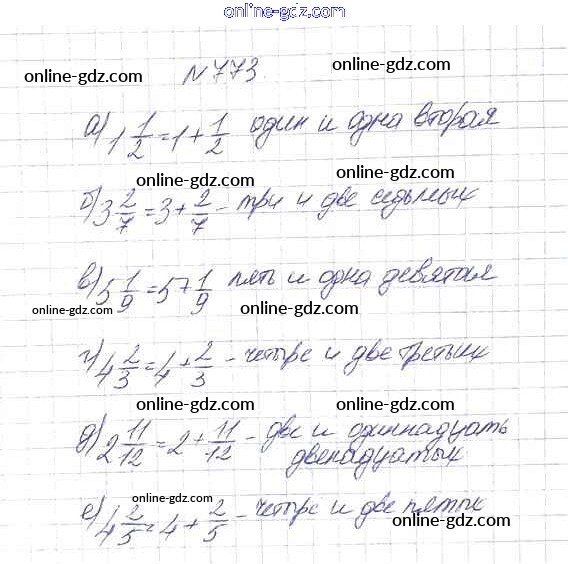 online-gdz.com
online-gdz.com
№773.
online-gdz.com
а) 1 1/2 = 1 + 1/2 один и одна вторая
online-gdz.com
online-gdz.com
б) 3 2/7 = 3 + 2/7 - три и две седьмых
online-gdz.com
online-gdz.com
в) 5 1/9 = 5 + 1/9 пять и одна девятая
online-gdz.com
online-gdz.com
г) 4 2/3 = 4 + 2/3 - четыре и две третьих
online-gdz.com
online-gdz.com
д) 2 11/12 = 2 + 11/12 - две и одиннадцать
двенадцатых
online-gdz.com
online-gdz.com
е) 4 2/5 = 4 + 2/5 - четыре и две пятых
online-gdz.com
online-gdz.com